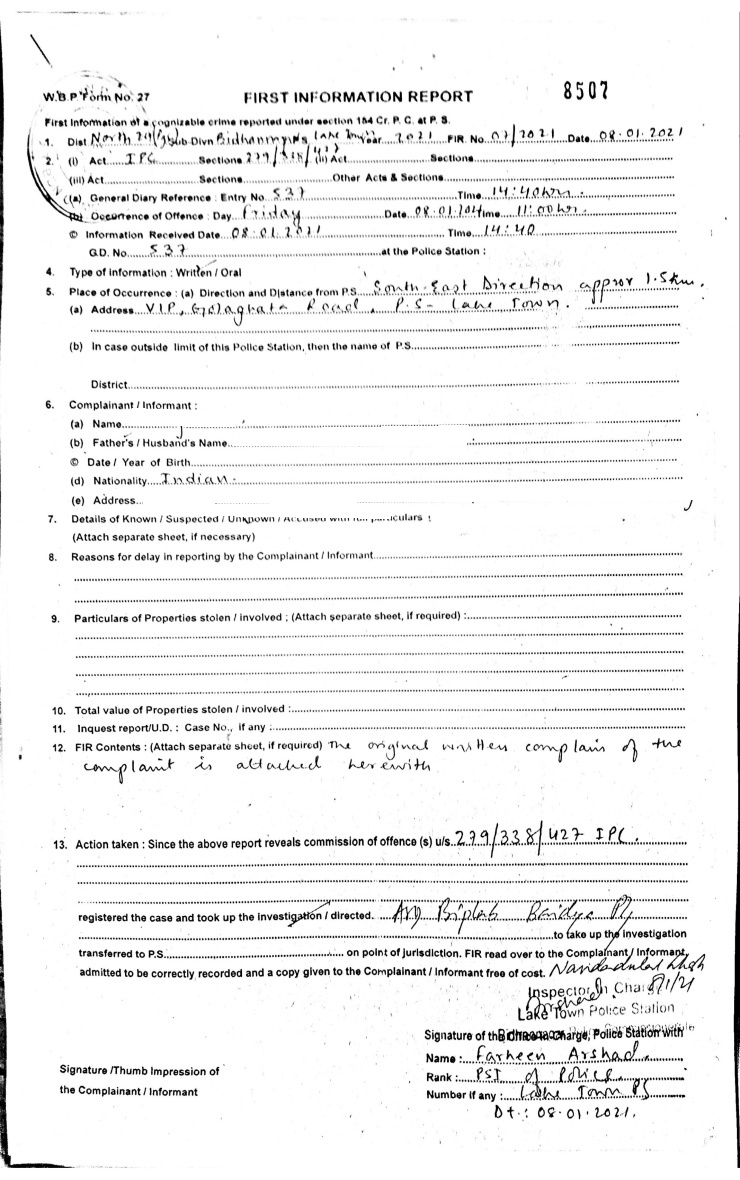 8507
W.B.P Form No. 27 FIRST INFORMATION REPORT
First Information of a cognizable crime reported under section 154 Cr. P. C. at P. S.
1. Dist North 24 Sub Divn Bidhannagar P.S Lake Town Year 2021 FIR. No 07/2021 Date 08.01.2021
2. (i) Act IPC Sections 279/338/427 (ii) Act Sections
(iii) Act Sections Other Acts & Sections
(a) General Diary Reference : Entry No 537 Time 14:40 hrs.
(b) Occurrence of Offence : Day Friday Date 08.01.2021 Time 11:00 hr.
© Information Received Date 08.01.2021 Time 14:40
G.D. No. 537 at the Police Station :
4. Type of Information : Written / Oral
5. Place of Occurrence : (a) Direction and Distance from P.S. South-East Direction approx 1.5km.
(a) Address VIP, Golaghata Road, P.S- Lake Town.
(b) In case outside limit of this Police Station, then the name of P.S.
District
6. Complainant / Informant :
(a) Name
(b) Father's / Husband's Name
© Date / Year of Birth
(d) Nationality Indian.
(e) Address
7. Details of Known / Suspected / Unknown / Accused with full particulars :
(Attach separate sheet, if necessary)
8. Reasons for delay in reporting by the Complainant / Informant
9. Particulars of Properties stolen / involved ; (Attach separate sheet, if required) :
10. Total value of Properties stolen / involved :
11. Inquest report/U.D. : Case No., if any :
12. FIR Contents : (Attach separate sheet, if required) The original written complain of the
complaint is attached herewith
13. Action taken : Since the above report reveals commission of offence (s) u/s. 279/338/427 IPC.
registered the case and took up the investigation / directed. Biplab Baidya
to take up the investigation
transferred to P.S. on point of jurisdiction. FIR read over to the Complainant / Informant,
admitted to be correctly recorded and a copy given to the Complainant / Informant free of cost.
8/1/21
Inspector In Charge
Lake Town Police Station
Signature of the Officer-in-Charge, Police Station with
Name : Farheen Arshad
Signature /Thumb Impression of
the Complainant / Informant
Rank : PSI of Police
Number if any : Lake Town PS
Dt.: 08.01.2021.